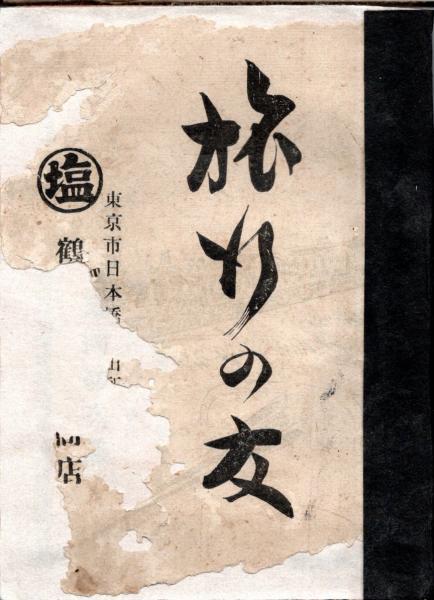 旅行の友
東京市日本橋
塩
鶴
商店